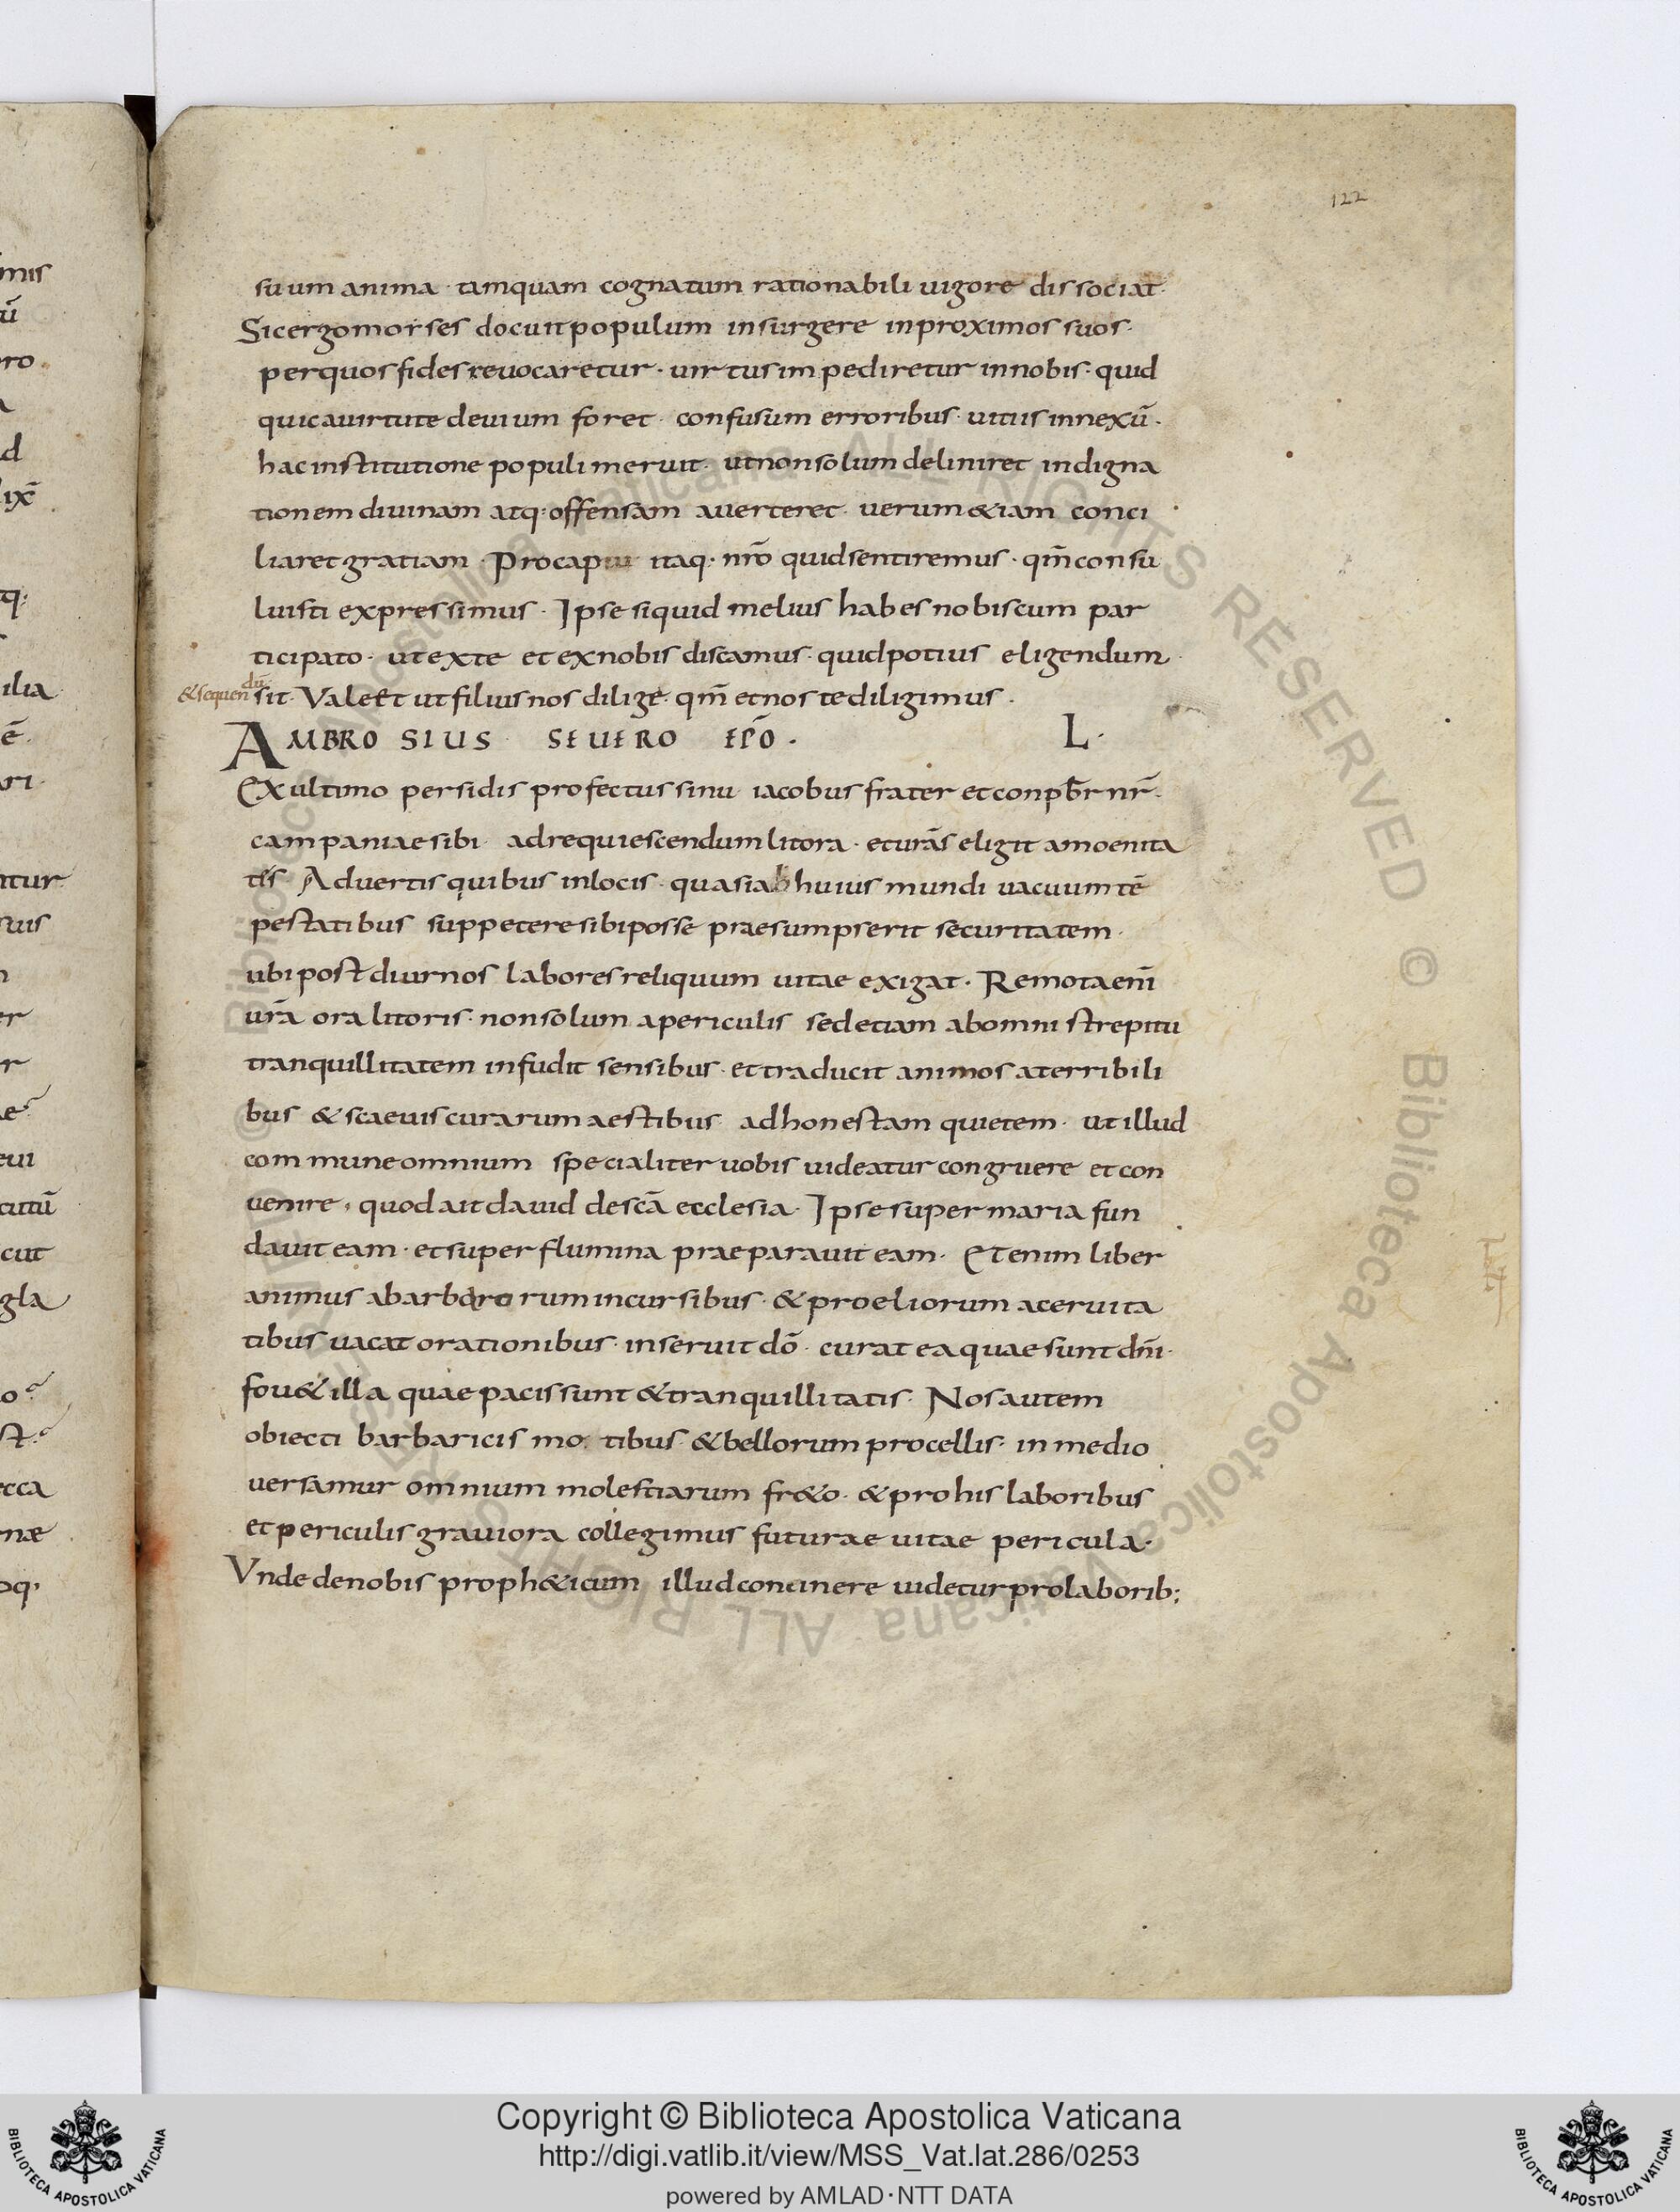 122
suum anima · tamquam cognatum rationabili uigore dissociat·
Sic ergo moises docuit populum insurgere inproximos suos·
per quos fides reuocaretur · uirtus impediretur in nobis · quid
quic auirtute deuium foret · confusum erroribus · uitiis innexū ·
hac institutione populi meruit · ut non solum deliniret indigna
tionem diuinam atq· offensam auerteret · uerum &iam conci
liaret gratiam · Pro captu itaq· nr̄o quid sentiremus · qm̄ consu
luisti expressimus · Ipse siquid melius habes nobiscum par
ticipato · ut exte et ex nobis discamus · quid potius eligendum
& sequendū sit · Vale et ut filius nos dilige · qm̄ et nos te diligimus ·
AMBROSIUS SEUERO EPŌ · L ·
Ex ultimo persidis profectus sinu iacobus frater et conpb̄r nr̄ ·
campaniae sibi ad requiescendum litora · et urās eligit amoenita
tes Aduertis quibus in locis · quasi ab huius mundi uacuum tē
pestatibus suppetere sibi posse praesumpserit securitatem ·
ubi post diurnos labores reliquum uitae exigat · Remota eni̅
urā ora litoris · non solum apericulis sed etiam abomni strepitu
tranquillitatem infudit sensibus · et traducit animos aterribili
bus & scaeuis curarum aestibus ad honestam quietem · ut illud
commune omnium specialiter uobis uideatur congruere et con
uenire · quod ait dauid de scā ecclesia · Ipse super maria fun
dauit eam · et super flumina praeparauit eam · Etenim liber
animus abarbarorum incursibus · & proeliorum aceruita
tibus uacat orationibus · inseruit dō · curat ea quae sunt dn̄i ·
fou& illa quae pacis sunt & tranquillitatis · Nos autem
obiecti barbaricis mo tibus · & bellorum procellis · in medio
uersamur omnium molestiarum fr&o · & pro his laboribus
et periculis grauiora collegimus futurae uitae pericula ·
Vnde de nobis proph&icum illud concinere uidetur pro laborib;
mis
ū
pro
d
ix̄
tq·
ilia
ē
ari
ntur
suis
er
r
ae
eui
cutū
cut
gla
o
st
ecca
nae
oq·
Copyright © Biblioteca Apostolica Vaticana
http://digi.vatlib.it/view/MSS_Vat.lat.286/0253
powered by AMLAD·NTT DATA
BIBLIOTECA APOSTOLICA VATICANA
BIBLIOTECA APOSTOLICA VATICANA
© Biblioteca Apostolica Vaticana ALL RIGHTS RESERVED © Biblioteca Apostolica Vaticana ALL RIGHTS RESERVED